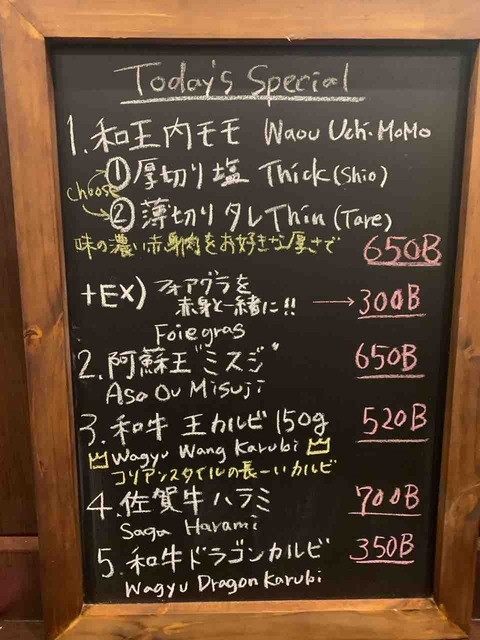 Today's Special
1. 和王内モモ Waou Uchi.MoMo
① 厚切り塩 Thick (Shio)
Choose
② 薄切りタレ Thin (Tare)
味の濃い赤身肉をお好きな厚さで 650B
+EX) フォアグラを
赤身と一緒に!! → 300B
Foiegras
2. 阿蘇王"ミスジ" 650B
Aso Ou Misuji
3. 和牛 王カルビ 150g 520B
Wagyu Wang Karubi
コリアンスタイルの長ーいカルビ
4. 佐賀牛ハラミ 700B
Saga Harami
5. 和牛ドラゴンカルビ 350B
Wagyu Dragon Karubi